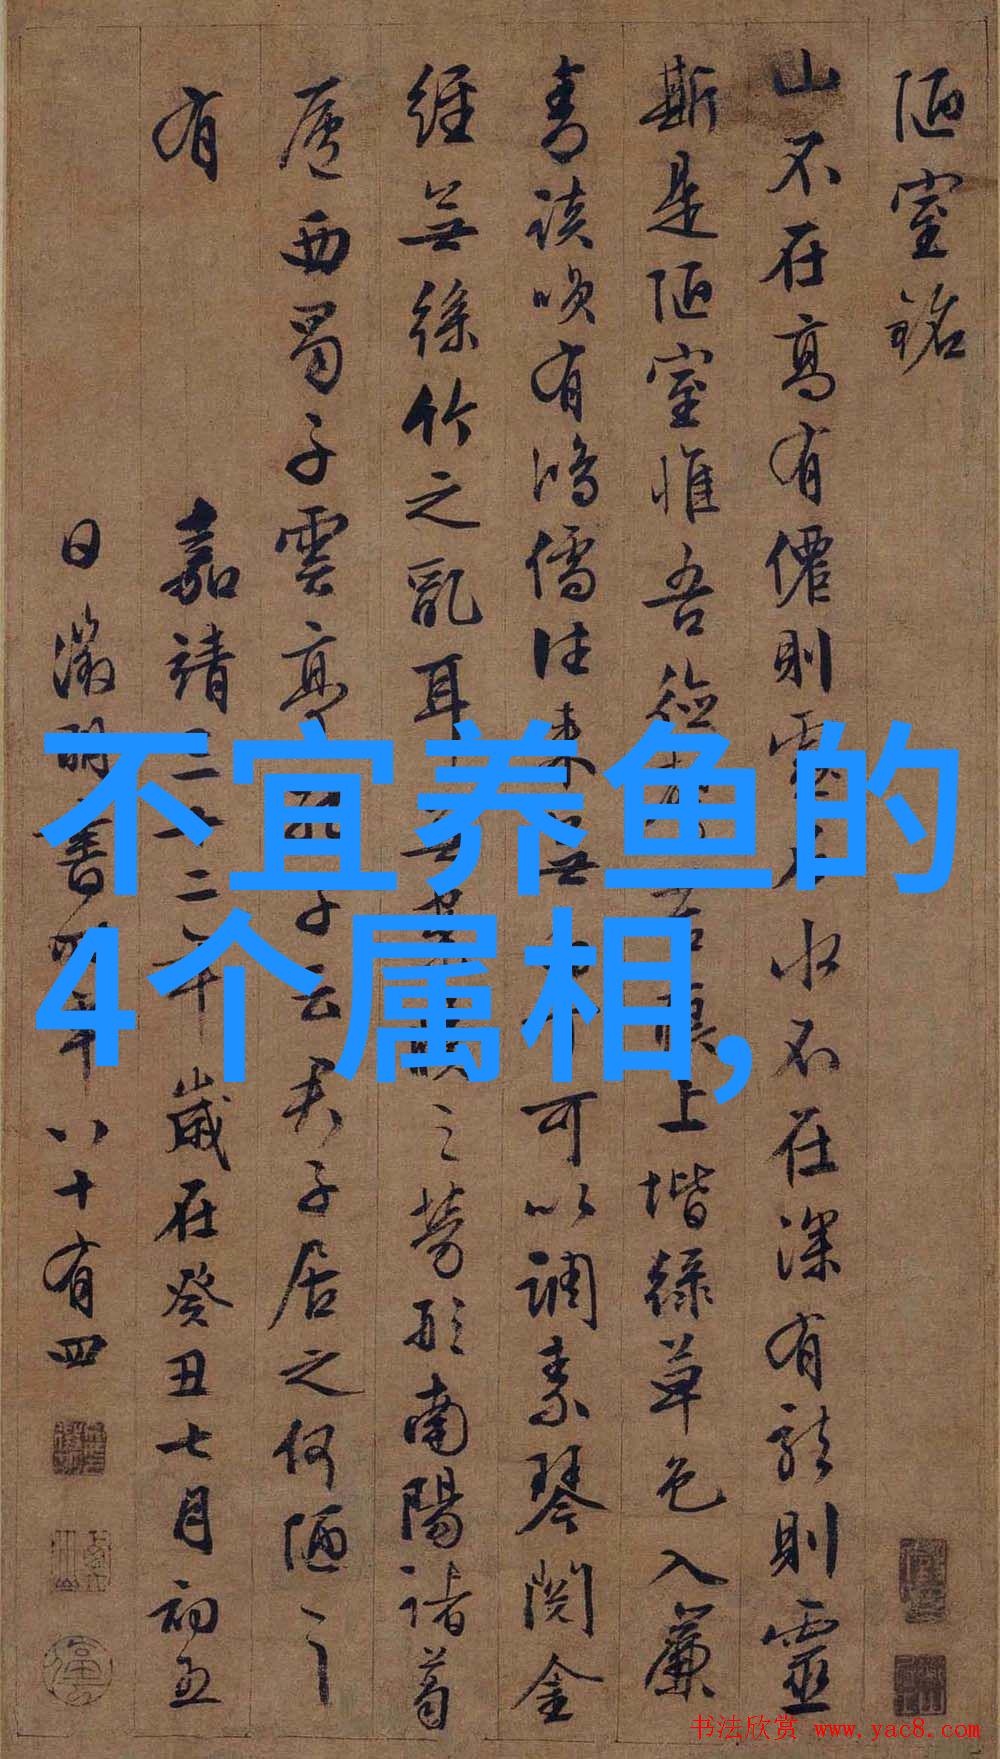 陋室銘
山不在高有僊則水不在深有龍則靈
斯是陋室惟吾德馨苔痕上堦緑草色入簾
青談咲有鴻儒往來無白丁可以調素琴閱金
經無絲竹之亂耳無案牘之勞形南陽諸葛
廬西蜀子雲亭孔子云君子居之何陋之
有
嘉靖三十二年歲在癸丑七月初五
日徵明書時年八十有四
不宜养鱼的
4个属相,
书法欣赏 www.yac8.com